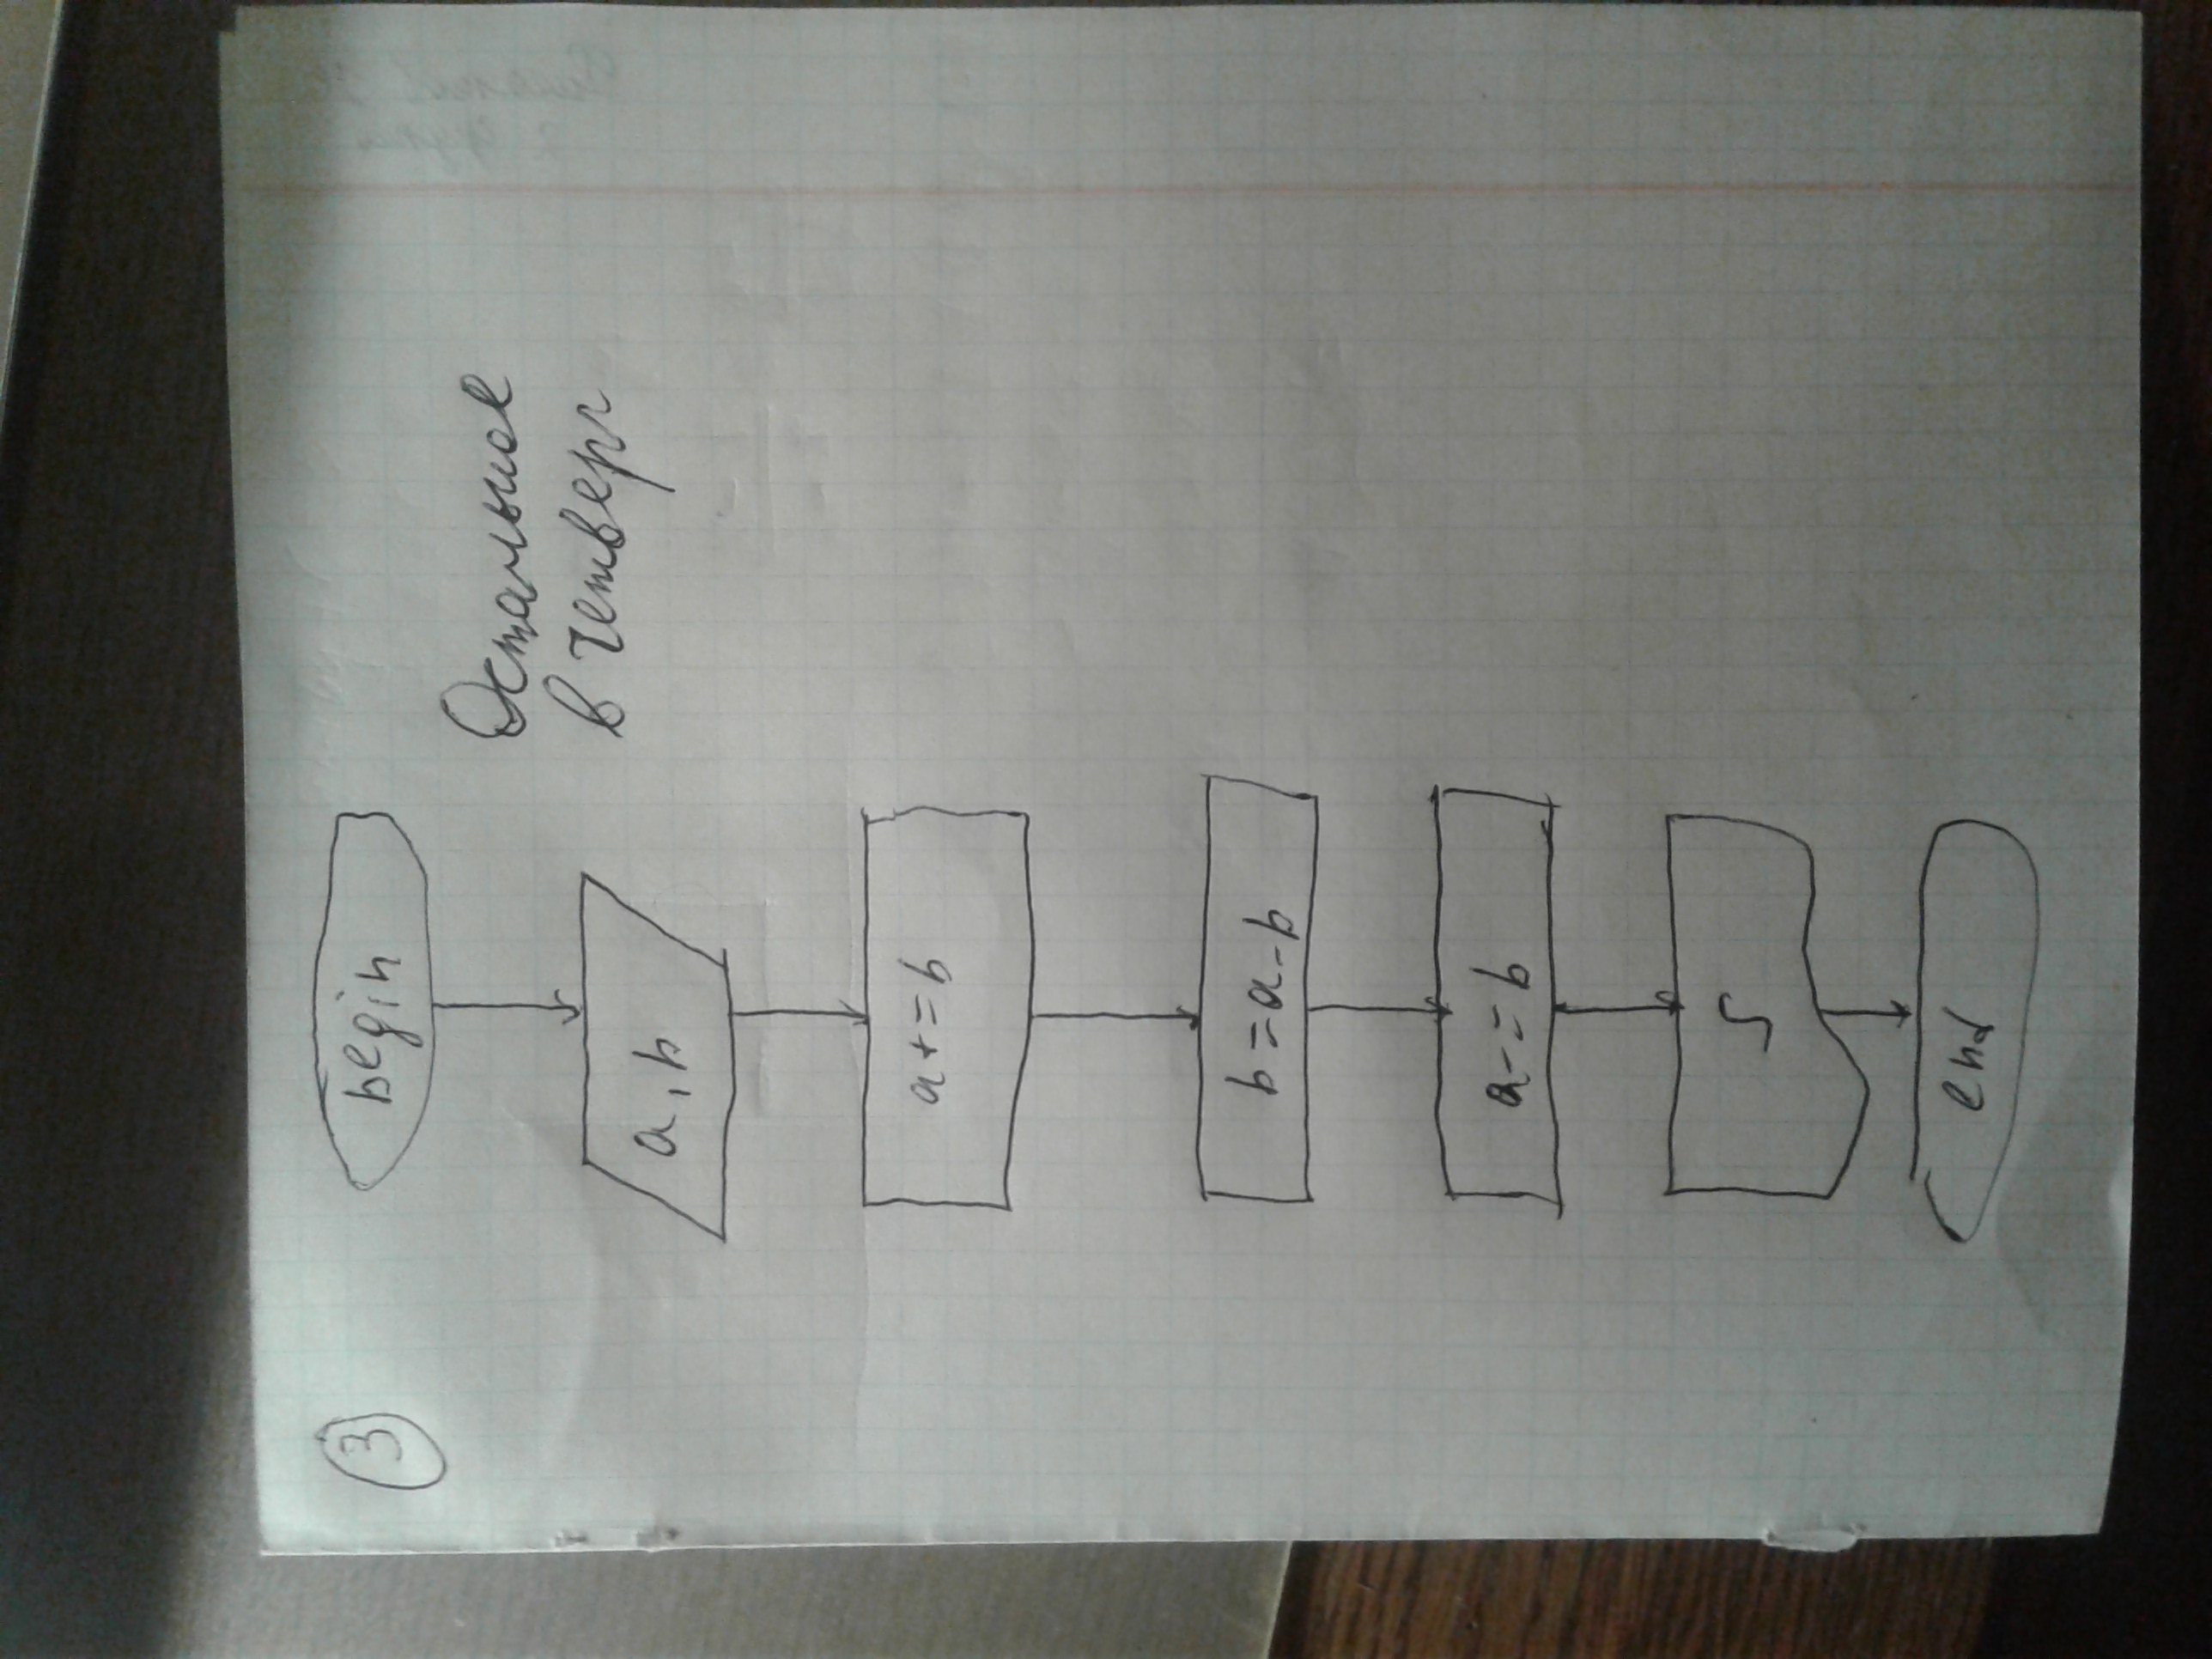 3
begin
Остальное
в четверг
a, b
a+=b
b=a-b
a-=b
S
end